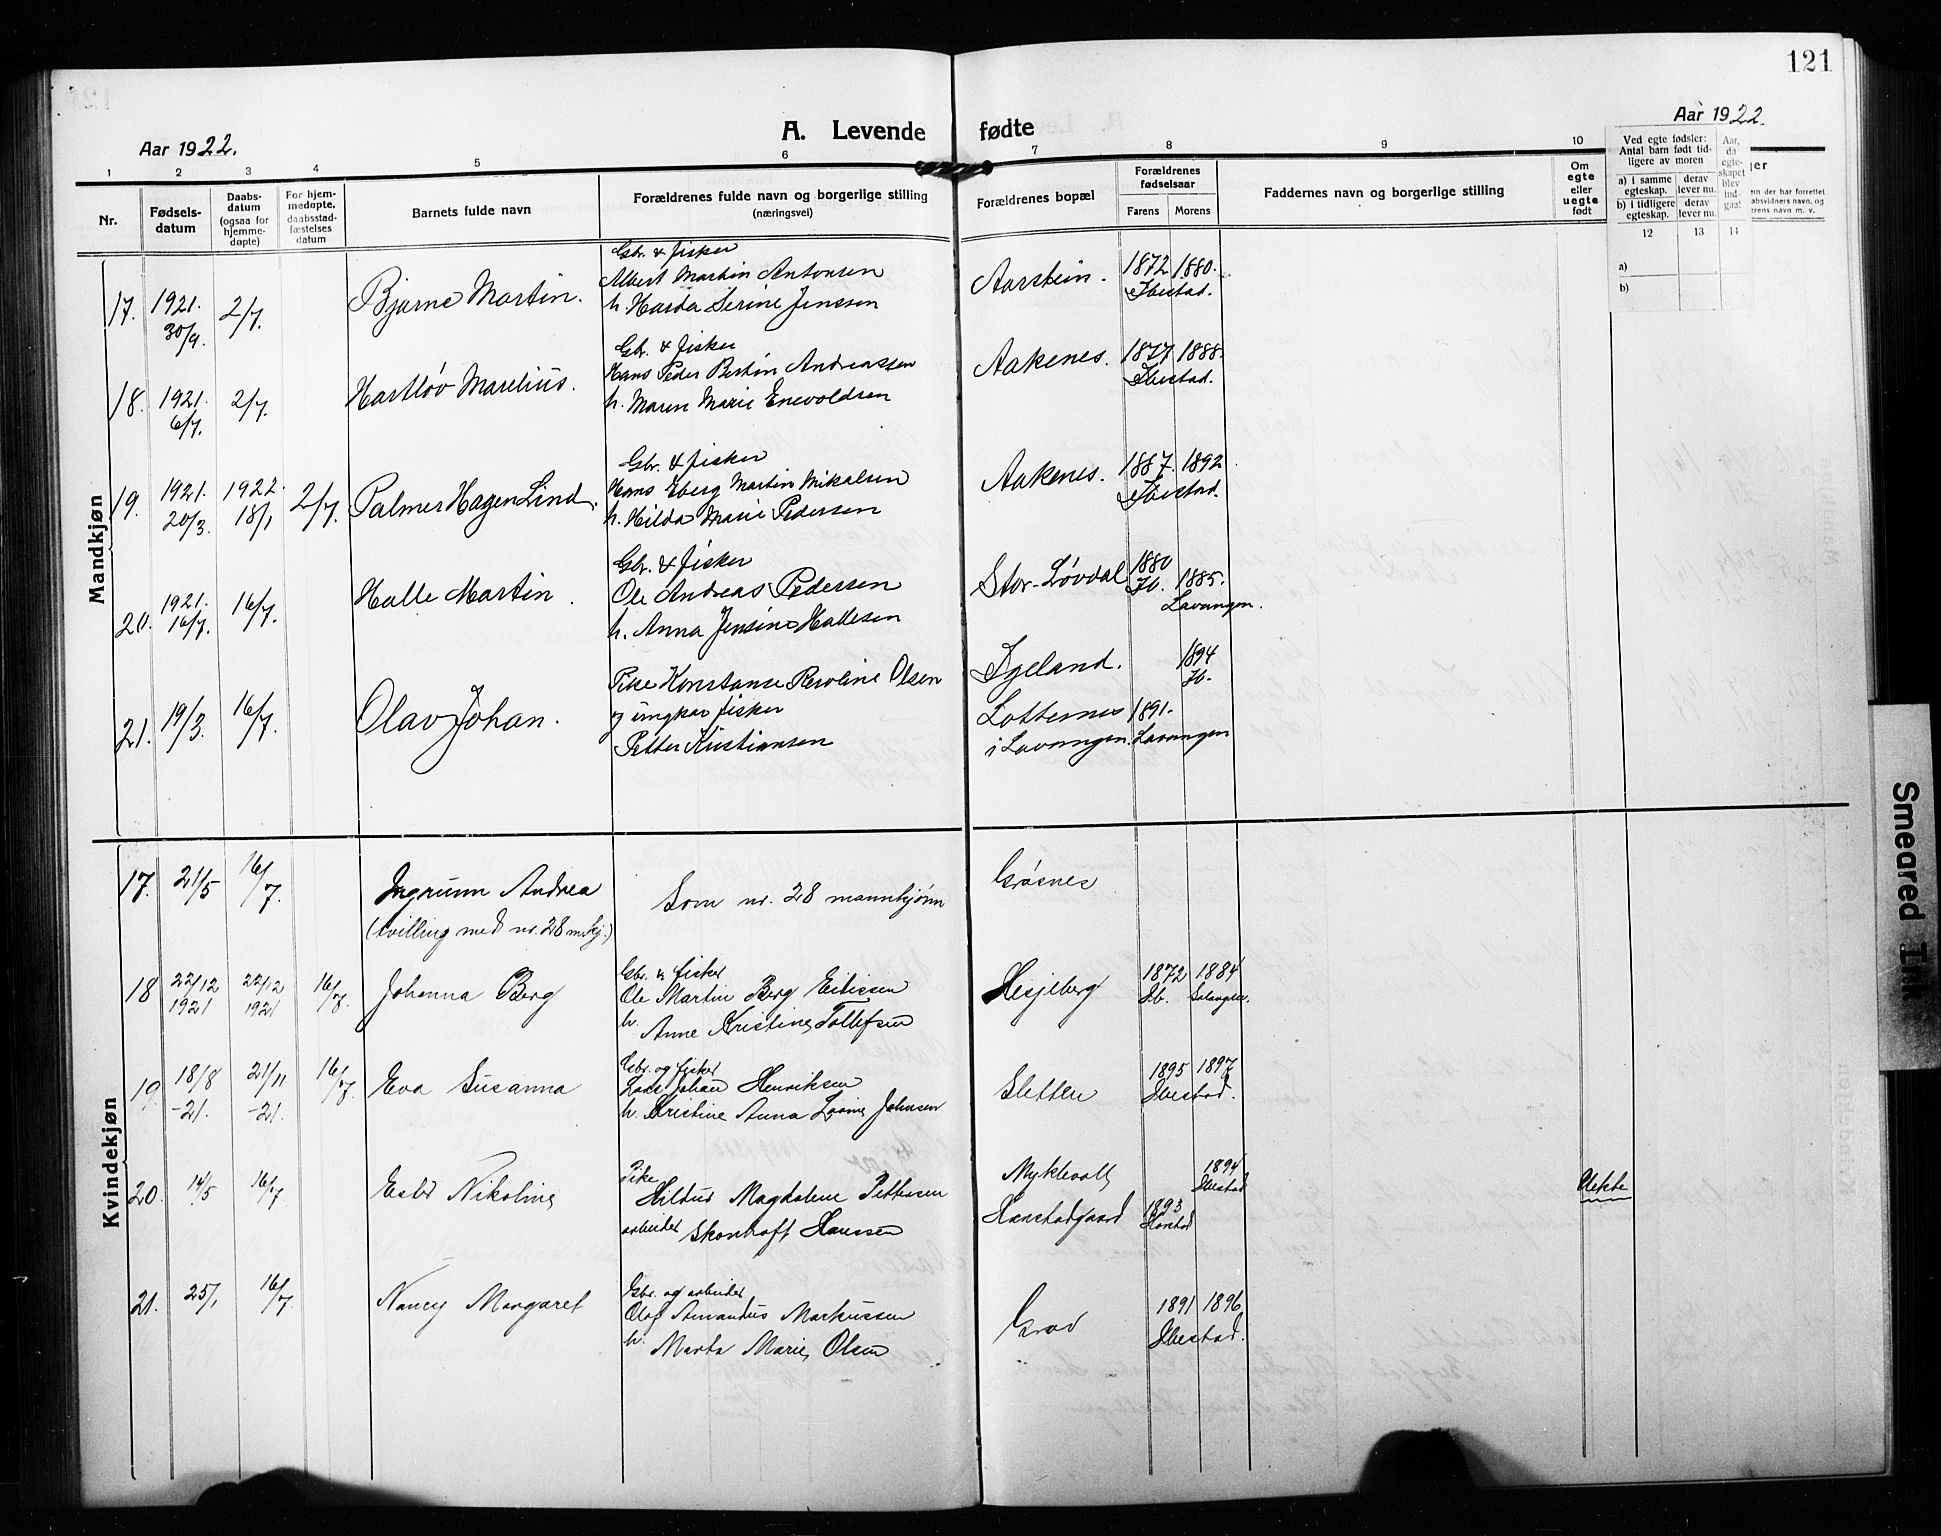 121
Aar 1922.
A. Levende fødte
Aar 1922.
1 2 3 4 5 6 7 8 9 10
Nr.
Fødsels-
datum
Daabs-
datum
(ogsaa for
hjemme-
døpte)
For hjem-
medøpte,
daabsstad-
fæstelses
datum
Barnets fulde navn
Forældrenes fulde navn og borgerlige stilling
(næringsvei)
Forældrenes bopæl
Forældrenes
fødselsaar
Farens Morens
Faddernes navn og borgerlige stilling
Om
egte
eller
uegte
født
Ved egte fødsler:
Antal barn født tid-
ligere av moren
a) i samme
egteskap.
derav
lever nu.
b) i tidligere
egteskap.
derav
lever nu.
Aar,
da
egte-
skapet
blev
ind-
gaat
12 13 14
a)
b)
Mandkjøn
17. 1921. 30/9. 2/7. Bjarne Martin.
Gbr. & fisker
Albert Martin Antonsen
h. Harda Serine Jenssen
Aarstein. 1872 1880.
Ibestad.
18. 1921. 6/7. 2/7. Hartløv Marelius.
Gbr. & fisker
Hans Peder Bertin Andreassen
h. Maren Marie Enevoldsen
Aakenes. 1877 1888.
Ibestad.
19. 1921. 20/3. 1922. 18/1 2/7. Palmer Hagen Lind.
Gbr. & fisker
Hans Eberg Martin Mikalsen
h. Hilda Marie Pedersen
Aakenes. 1887. 1892.
Ibestad.
20. 1921. 16/7. 16/7. Halle Martin.
Gbr. & fisker
Ole Andreas Pedersen
h. Anna Jensine Hallesen
Stor-Løvdal 1880 Ib. 1885. Lavangen.
21. 19/3. 16/7. Olav Johan.
Pike Konstanse Karoline Olsen
og ungkar fisker
Petter Kristiansen
Igeland. 1894 Ib.
Lotternes 1891.
i Lavangen. Lavangen
Kvindekjøn
17. 21/5 16/7. Ingrunn Andrea
(tvilling med nr. 28 m.kj.)
Som nr. 28 mannkjønn
Grøsnes
18 22/12 1921 22/12 1921 16/7. Johanna Berg
Gbr. & fisker
Ole Martin Berg Eidissen
h. Anne Kristine Tollefsen
Hesjeberg 1872 Ib. 1884 Salangen.
19. 18/8 -21. 21/11 -21. 16/7. Eva Susanna
Gbr. og fisker
Lars Johan Henriksen
h. Kristine Anna Johnsen
Sletten 1895 1897
Ibestad.
20. 14/5 16/7. Nikoline
Pike
Hildur Magdalene Pettersen
arbeider Skonhoft Hanssen
Myklevoll 1894 Ibestad
Harstadgaard 1893 Harstad
Uekte
21. 25/1 16/7. Nancy Margaret
Gbr. og arbeider
Olaf Amandus Markussen
h. Marta Marie Olsen
Grov 1891 1896
Ibestad.
Smeared Ink